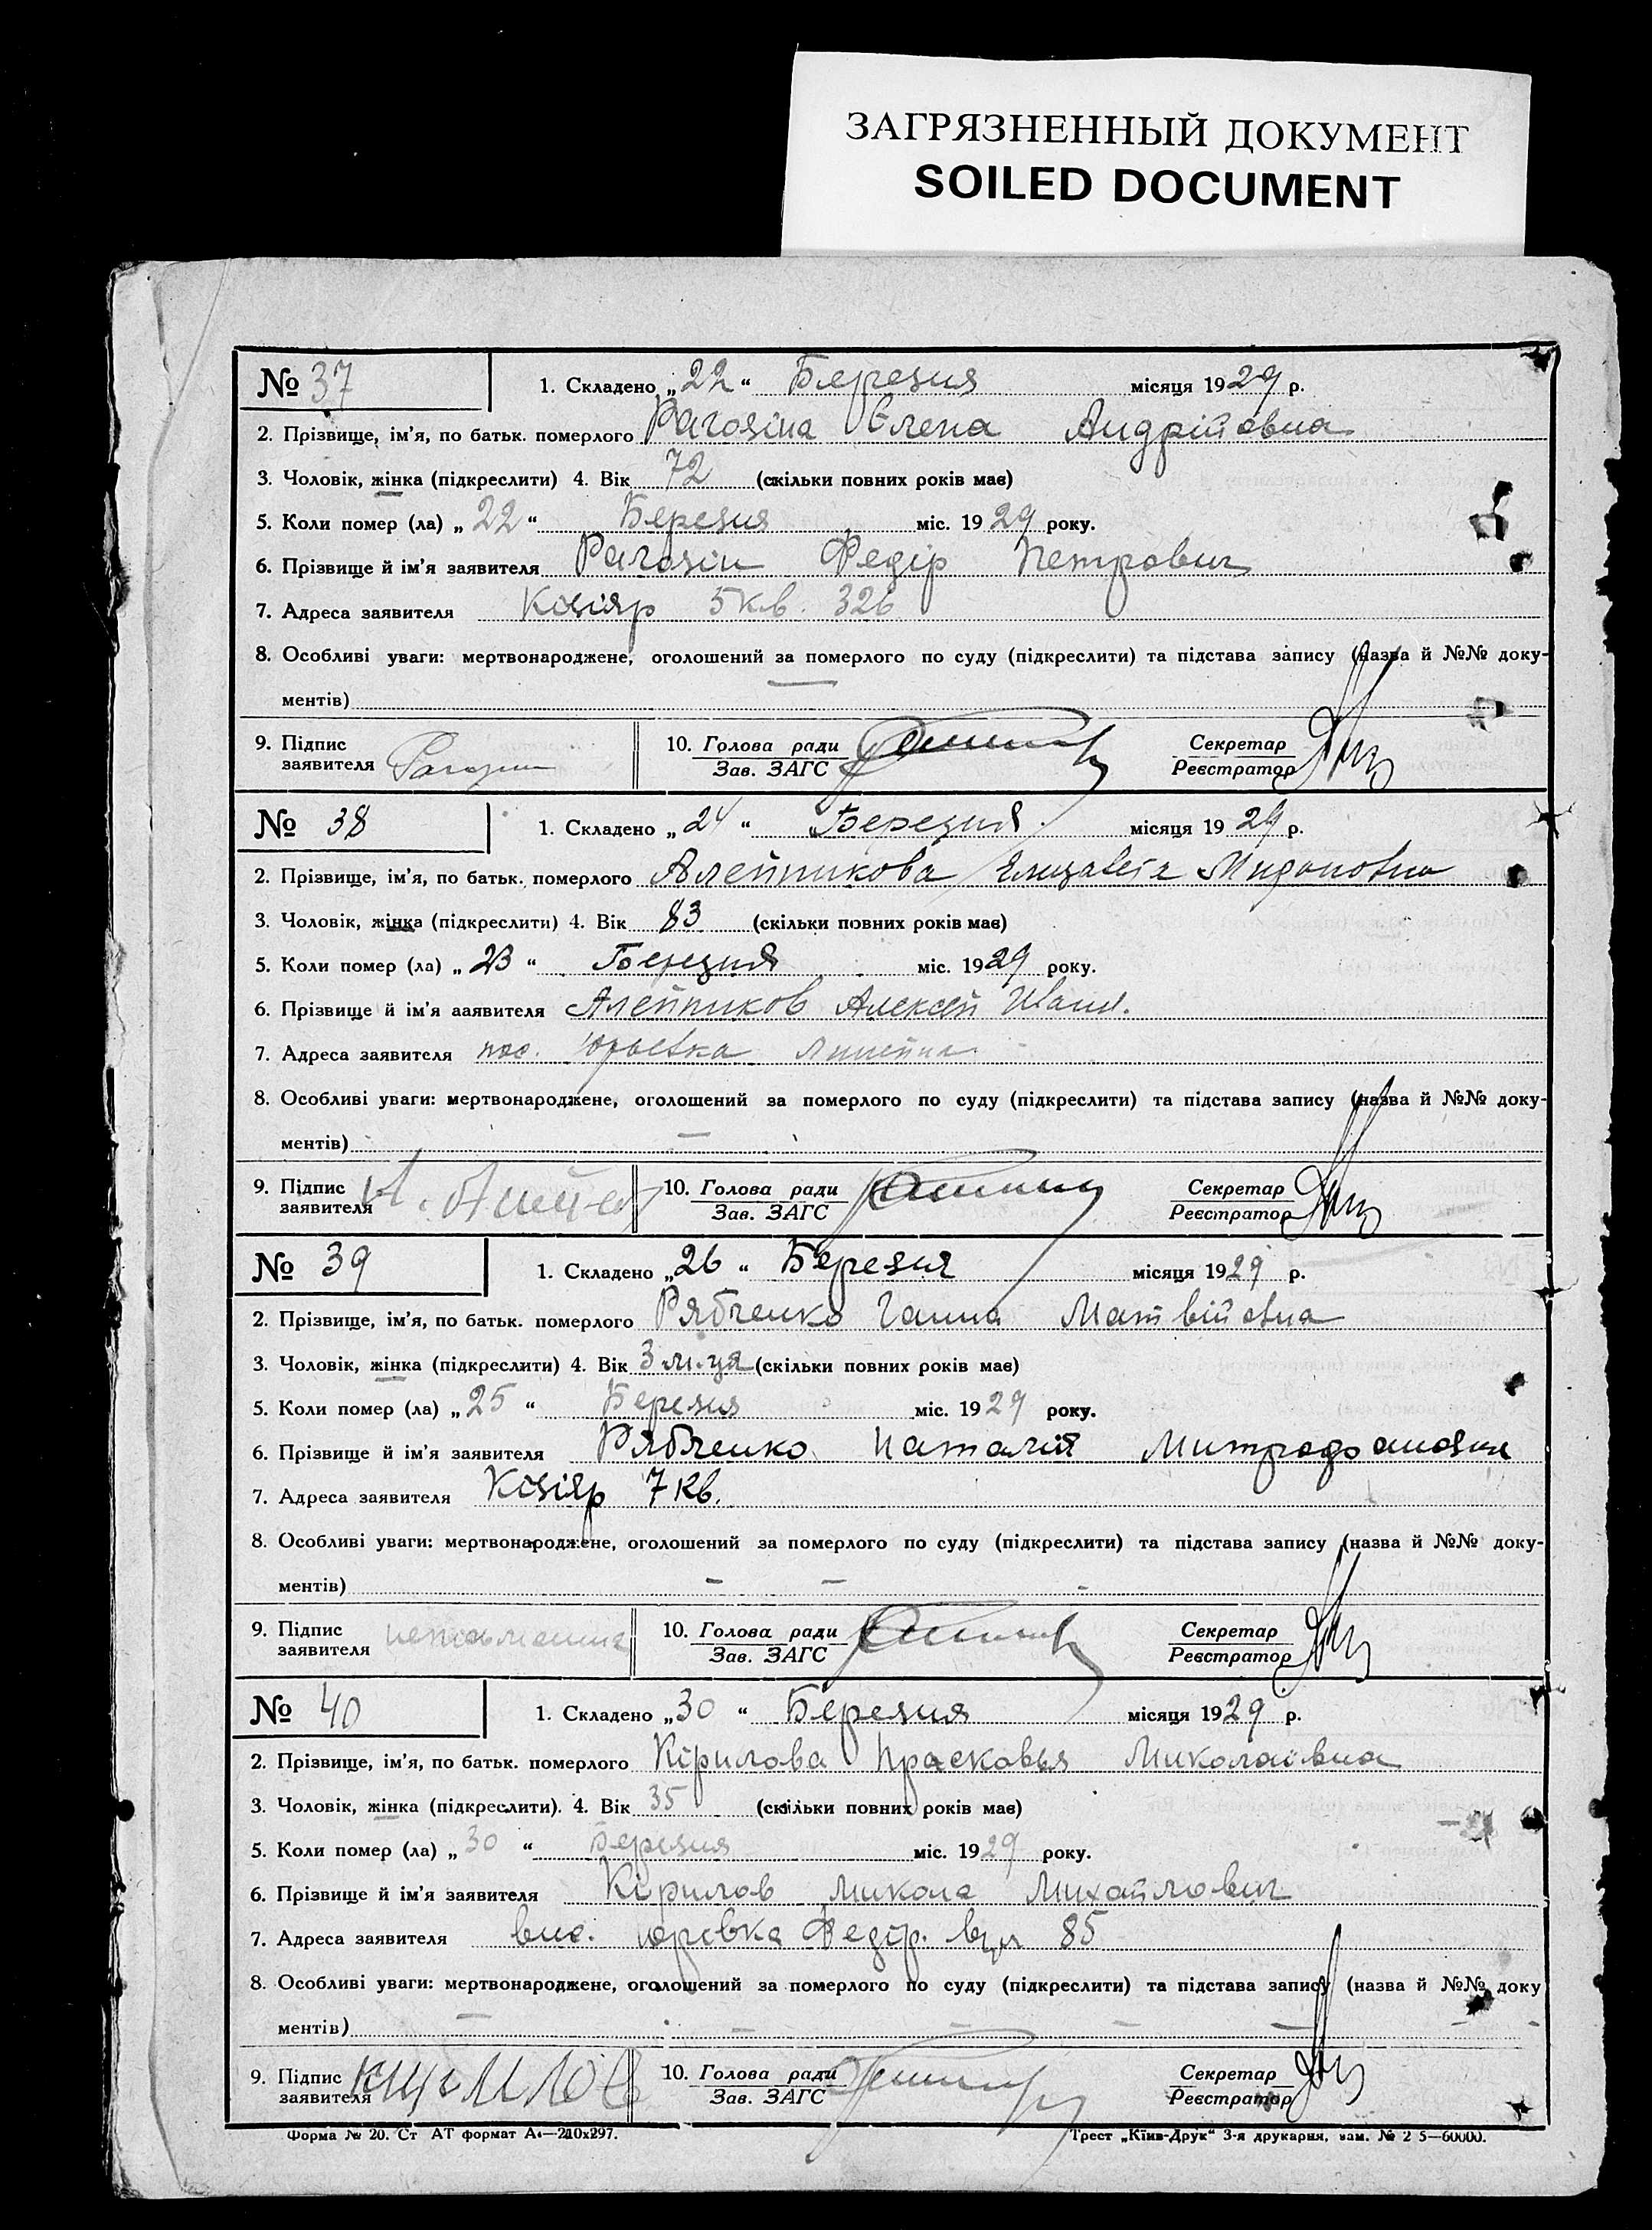 ЗАГРЯЗНЕННЫЙ ДОКУМЕНТ
SOILED DOCUMENT
№ 37 1. Складено „22“ Березня місяця 1929 р.
2. Прізвище, ім’я, по батьк. померлого Рагозіна Єлена Андрійовна
3. Чоловік, жінка (підкреслити) 4. Вік 72 (скільки повних років має)
5. Коли помер (ла) „22“ Березня міс. 1929 року.
6. Прізвище й ім’я заявителя Рагозін Федір Петрович
7. Адреса заявителя 5 кв. 326
8. Особливі уваги: мертвонароджене, оголошений за померлого по суду (підкреслити) та підстава запису (назва й №№ доку-
ментів)
9. Підпис заявителя Рагозин 10. Голова ради Зав. ЗАГС Секретар Реєстратор
№ 38 1. Складено „24“ Березня місяця 1929 р.
2. Прізвище, ім’я, по батьк. померлого Алейникова Елизавета
3. Чоловік, жінка (підкреслити) 4. Вік 83 (скільки повних років має)
5. Коли помер (ла) „23“ Березня міс. 1929 року.
6. Прізвище й ім’я заявителя Алейников Алексей Иван.
7. Адреса заявителя пос. Юрьевка
8. Особливі уваги: мертвонароджене, оголошений за померлого по суду (підкреслити) та підстава запису (назва й №№ доку-
ментів)
9. Підпис заявителя 10. Голова ради Зав. ЗАГС Секретар Реєстратор
№ 39 1. Складено „26“ Березня місяця 1929 р.
2. Прізвище, ім’я, по батьк. померлого Рябченко Ганна Матвійовна
3. Чоловік, жінка (підкреслити) 4. Вік 3 м-ця (скільки повних років має)
5. Коли помер (ла) „25“ Березня міс. 1929 року.
6. Прізвище й ім’я заявителя Рябченко Наталія Митрофановна
7. Адреса заявителя 7 кв.
8. Особливі уваги: мертвонароджене, оголошений за померлого по суду (підкреслити) та підстава запису (назва й №№ доку-
ментів)
9. Підпис заявителя неписьменна 10. Голова ради Зав. ЗАГС Секретар Реєстратор
№ 40 1. Складено „30“ Березня місяця 1929 р.
2. Прізвище, ім’я, по батьк. померлого Кірилова Прасковья Миколаівна
3. Чоловік, жінка (підкреслити). 4. Вік 35 (скільки повних років має)
5. Коли помер (ла) „30“ Березня міс. 1929 року.
6. Прізвище й ім’я заявителя Кірилов Микола Михайлович
7. Адреса заявителя вис. Юрівка Федір. вул 85
8. Особливі уваги: мертвонароджене, оголошений за померлого по суду (підкреслити) та підстава запису (назва й №№ доку
ментів)
9. Підпис заявителя 10. Голова ради Зав. ЗАГС Секретар Реєстратор
Форма № 20. Ст АТ формат А4—210х297. Трест „Київ-Друк“ 3-я друкарня, зам. № 2 5—60000.